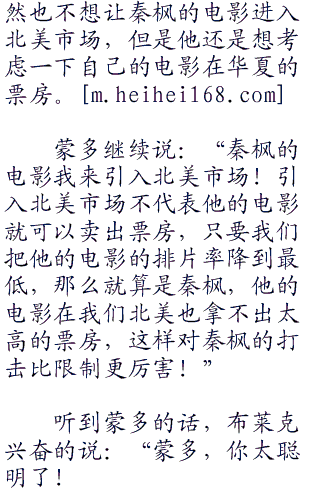 然也不想让秦枫的电影进入
北美市场，但是他还是想考
虑一下自己的电影在华夏的
票房。[m.heihei168.com]
蒙多继续说：“秦枫的
电影我来引入北美市场！引
入北美市场不代表他的电影
就可以卖出票房，只要我们
把他的电影的排片率降到最
低，那么就算是秦枫，他的
电影在我们北美也拿不出太
高的票房，这样对秦枫的打
击比限制更厉害！”
听到蒙多的话，布莱克
兴奋的说：“蒙多，你太聪
明了！